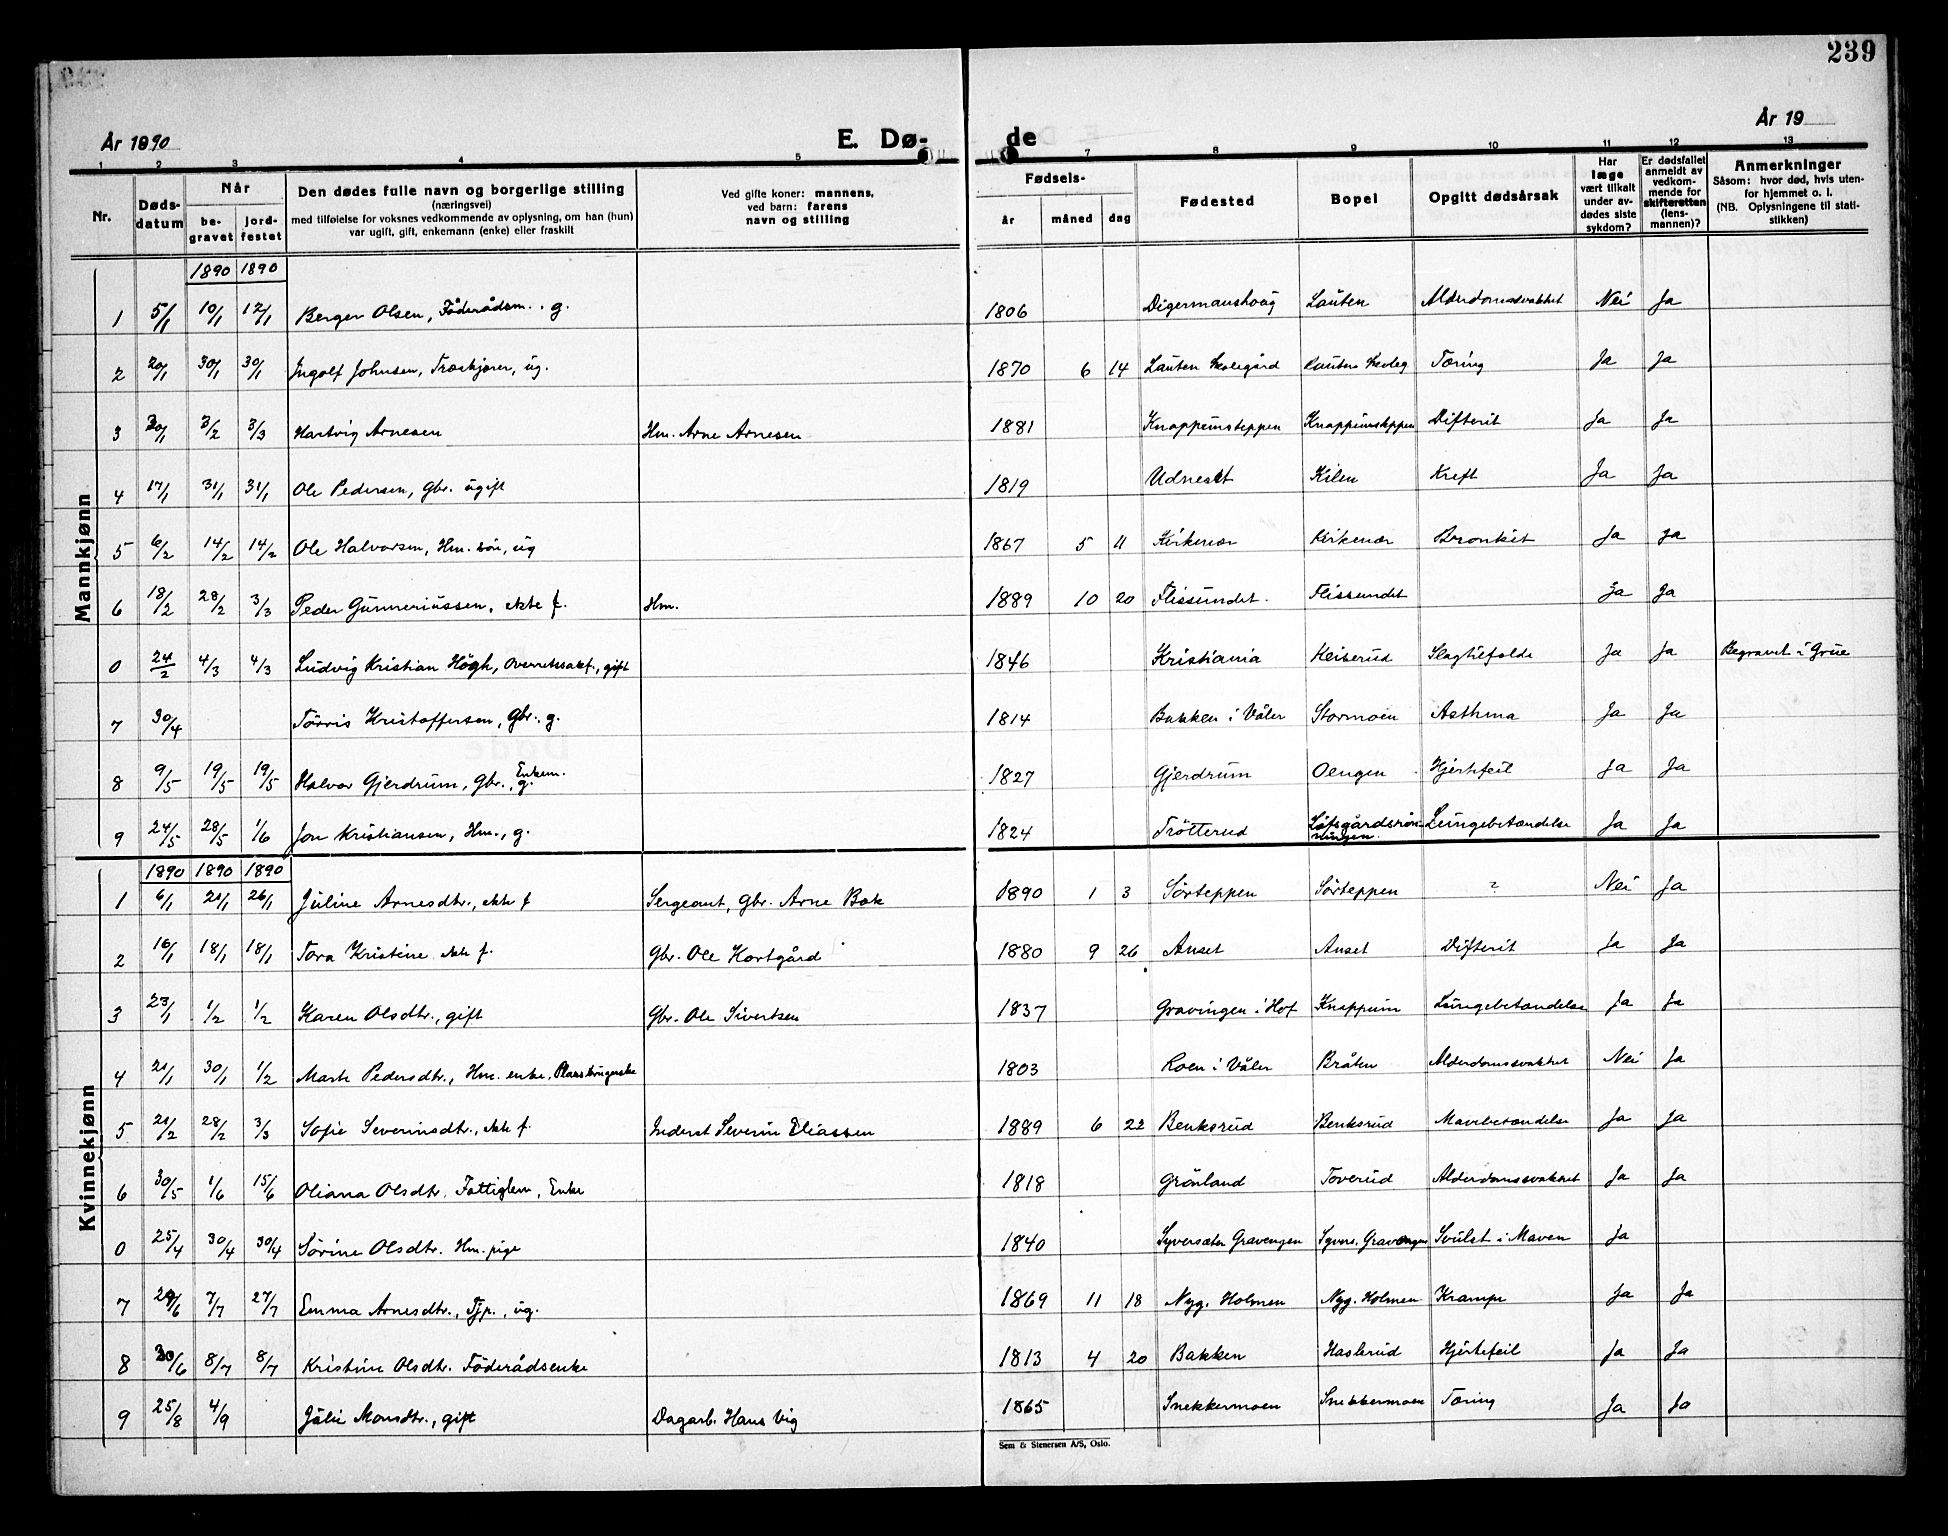 239
År 1890 E. Dø- de År 19
1 2 3 4 5 7 8 9 10 11 12 13
Nr. Døds-datum Når be-gravet jord-festet Den dødes fulle navn og borgerlige stilling (næringsvei) med tilføielse for voksnes vedkommende av oplysning, om han (hun) var ugift, gift, enkemann (enke) eller fraskilt Ved gifte koner: mannens, ved barn: farens navn og stilling Fødsels- år måned dag Fødested Bopel Opgitt dødsårsak Har læge vært tilkalt under av-dødes siste sykdom? Er dødsfallet anmeldt av vedkom-mende for skifteretten (lens-mannen)? Anmerkninger Såsom: hvor død, hvis uten-for hjemmet o. l. (NB. Oplysningene til stati-stikken)
Mannkjønn
1890 1890
1 5/1 10/1 12/1 Berger Olsen, Föderådsm., g. 1806 Digermanshoug Lauten Alderdomssvakhet Nei Ja
2 20/1 30/1 30/1 Ingolf Johnsen, Træskjører, ug. 1870 6 14 Lauten Skolegård Lauten Skoleg Tæring Ja Ja
3 30/1 3/2 3/3 Hartvig Arnesen Hm. Arne Arnesen 1881 Knappumsteppen Knappumsteppen Difterit Ja Ja
4 17/1 31/1 31/1 Ole Pedersen, Gbr. ugift 1819 Udneset Kilen Kreft Ja Ja
5 6/2 14/2 14/2 Ole Halvorsen, Hm. sön, ug 1867 5 11 Kirkenær Kirkenær Bronkit Ja Ja
6 18/2 28/2 3/3 Peder Gunneriussen, ekte f. Hm. 1889 10 20 Flissundet. Flissundet Ja Ja
0 24/2 4/3 4/3 Ludvig Kristian Högh, Overretssakf., gift 1846 Kristiania Heiserud Slagtilfelde Ja Ja Begravet i Grue
7 30/4 Törris Kristoffersen, Gbr., g. 1814 Bakken i Våler Stormoen Asthma Ja Ja
8 9/5 19/5 19/5 Halvor Gjerdrum, Gbr., Enkem. g. 1827 Gjerdrum Oengen Hjertefeil Ja Ja
9 24/5 28/5 1/6 Jon Kristiansen, Hm., g. 1824 Trötterud Löfsgårdsrönningen Lungebetændelse Ja Ja
Kvinnekjønn
1890 1890 1890
1 6/1 21/1 26/1 Juline Arnesdtr., ekte f Sergeant, Gbr. Arne Bak 1890 1 3 Sörteppen Sörteppen ? Nei Ja
2 16/1 18/1 18/1 Tora Kristine ekte f. Gbr. Ole Hortgård 1880 9 26 Anset Anset Difterit Ja Ja
3 23/1 1/2 1/2 Karen Olsdtr., gift Gbr. Ole Sivertsen 1837 Gravingen i Hof Knappum Lungebetændelse Ja Ja
4 21/1 30/1 1/2 Marte Pedersdtr., Hm. enke, 1803 Roen i Våler Bråten Alderdomssvakhet Nei Ja
5 21/2 28/2 3/3 Sofie Severinsdtr., ekte f. Inderst Severin Eliassen 1889 6 22 Benksrud Benksrud Mavebetændelse Ja Ja
6 30/5 1/6 15/6 Oliana Olsdtr. Fattiglem, Enke 1818 Grönland Toverud Alderdomssvakhet Ja Ja
0 25/4 30/4 30/4 Sörine Olsdtr. Hm. pige 1840 Syversæter Gravengen Syvers. Gravengen Svulst i Maven Ja
7 29/6 7/7 27/7 Emma Arnesdtr., Tjp., ug. 1869 11 18 Nyg. Holmen Nyg. Holmen Krampe Ja Ja
8 30/6 8/7 8/7 Kristine Olsdtr. Föderådsenke 1813 4 20 Bakken Haslerud Hjertefeil Ja Ja
9 25/8 4/9 Julie Monsdtr., gift Dagarb. Hans Vig 1865 Snekkermoen Snekkermoen Tæring Ja Ja
Sem & Stenersen A/S, Oslo.